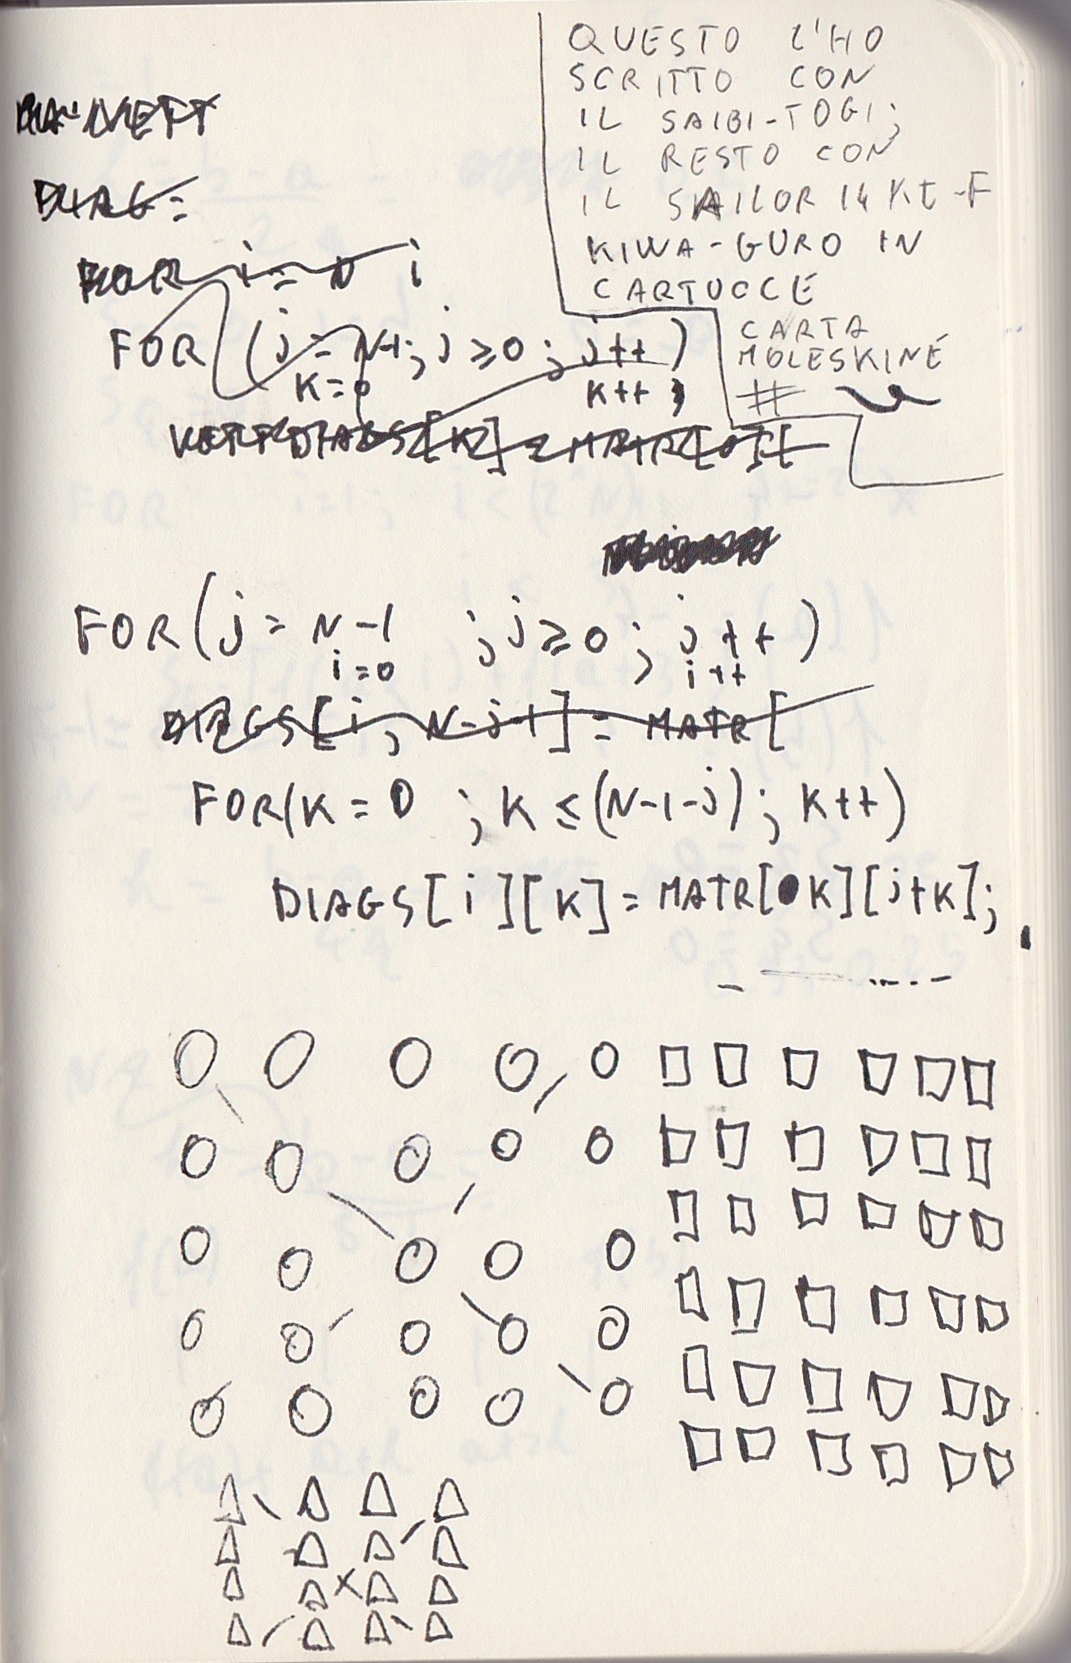 QUESTO L'HO
SCRITTO CON
IL SAIBI-TOGI;
IL RESTO CON
IL SAILOR 14 Kt-F
KIWA-GURO IN
CARTUCCE
CARTA
MOLESKINE
#
DIAG =
FOR i = N i
FOR (j = N-1; j ≥ 0; j++)
K=0 K++;
VETTDIAGS[K] = MATR[0][
FOR(j = N-1 ; j ≥ 0; j++)
i=0 , i++
DIAGS[i, N-j-1] = MATR[
FOR(K = 0 ; K ≤ (N-1-j); K++)
DIAGS[i][K] = MATR[K][j+K];